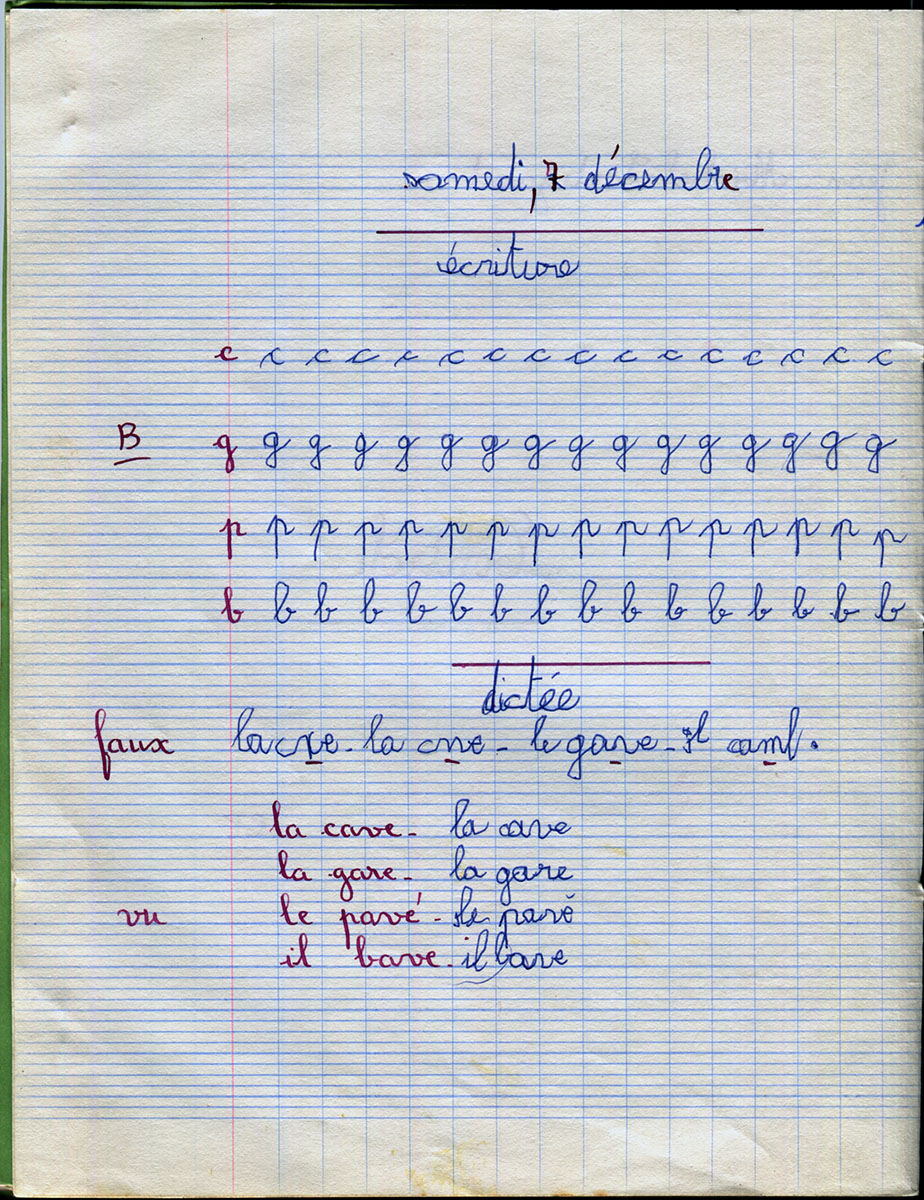 samedi, 7 décembre
écriture
c c c c c c c c c c c c c c c c
B g g g g g g g g g g g g g g g g
p p p p p p p p p p p p p p p p
b b b b b b b b b b b b b b b b
dictée
faux la cxe - la cne - le gave - Il caml.
la cave - la cave
la gare - la gare
vu le pavé - le pavé
il bave - il bave